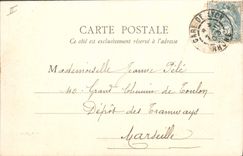 II
CARTE POSTALE
Ce côté est exclusivement réservé à l'adresse
GARE DE LYON
Mademoiselle Jeanne Pélé
40 Grand Chemin de Toulon
Dépôt des Tramways
Marseille